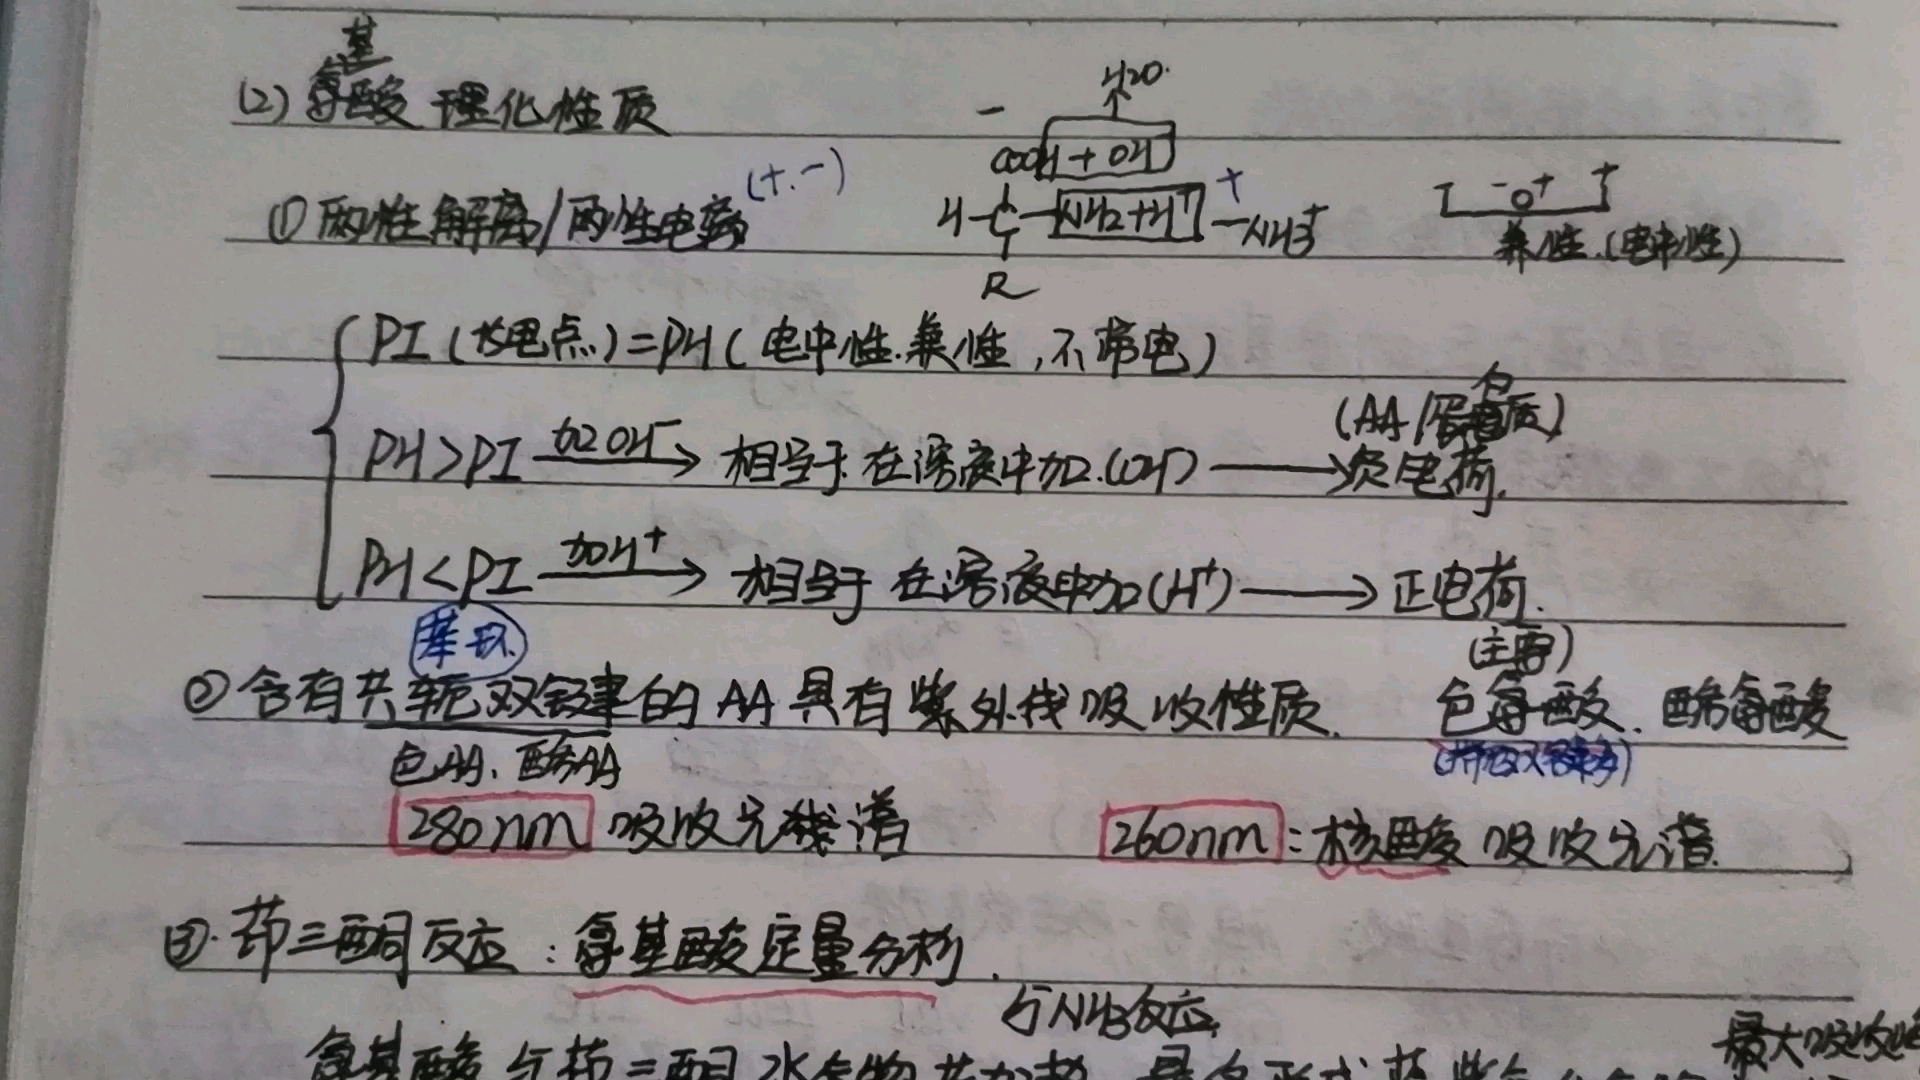 基
(2) 氨酸 理化性质
H2O
-
COOH + OH
①两性解离/两性电离 (+.-)
H-C-NH2+H+ -NH3+
+
R
- -o+ +
兼性.(电中性)
PI (等电点)=PH ( 电中性.兼性,不带电)
PH>PI 加OH- 相当于在溶液中加.(OH-) 负电荷.
(AA/蛋白质)
PH<PI 加H+ 相当于 在溶液中加(H+) 正电荷.
苯环
(主要)
②含有共轭双键的AA具有紫外线吸收性质. 色氨酸. 酪氨酸
色AA、酪AA
(共轭双键多)
280nm 吸收光线谱 260nm:核酸吸收光谱.
③.茚三酮反应:氨基酸定量分析.
与NH3反应,
最大吸收峰
氨基酸与茚三酮水合物共加热